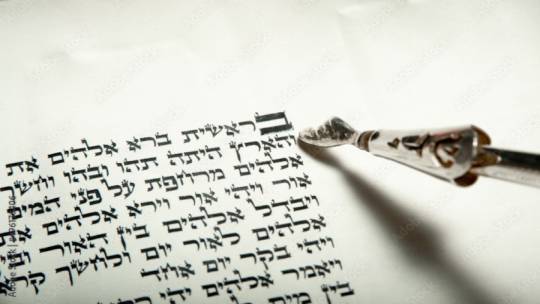 בראשית ברא אלהים את
והארץ היתה תהו ובהו
אלהים מרחפת על פני המים
אור ויהי אור וירא אלהים
ויבדל אלהים בין האור
אלהים לאור יום ולחשך
ויהי בקר יום אחד
ויאמר אלהים יהי
בין מים